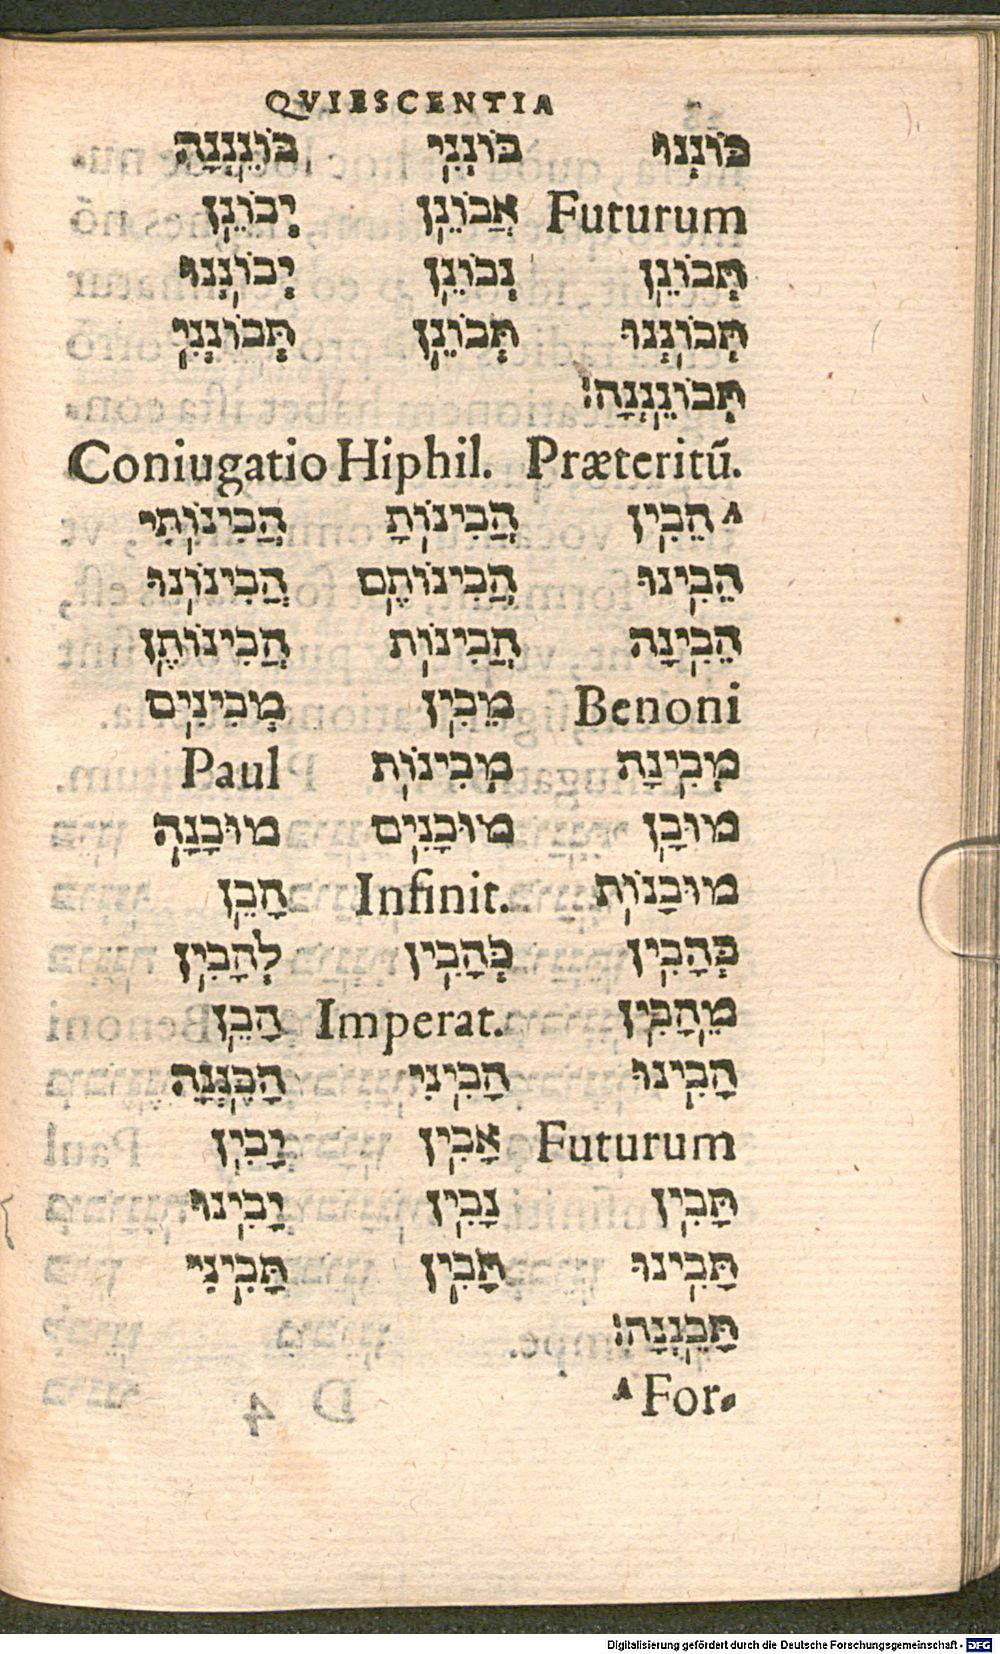 QVIESCENTIA
כּוֹנְנוּ כּוֹנְנִי כּוֹנֵנְנָה
Futurum אֲכוֹנֵן יְכוֹנֵן
תְּכוֹנֵן נְכוֹנֵן יְכוֹנְנוּ
תְּכוֹנְנוּ תְּכוֹנֵן תְּכוֹנְנִי
תְּכוֹנֵנְנָה׃
Coniugatio Hiphil. Præteritū.
A הֵכִין הֲכִינוֹתָ הֲכִינוֹתִי
הֵכִינוּ הֲכִינוֹתֶם הֲכִינוֹנוּ
הֵכִינָה הֲכִינוֹת הֲכִינוֹתֶן
Benoni מֵכִין מְכִינִים
מְכִינָה מְכִינוֹת Paul
מוּכָן מוּכָנִים מוּכָנָה
מוּכָנוֹת Infinit. הָכֵן
בְּהָכִין כְּהָכִין לְהָכִין
מֵהָכִין Imperat. הָכֵן
הָכִינוּ הָכִינִי הָכֵנְנָה
Futurum אָכִין יָכִין
תָּכִין נָכִין יָכִינוּ
תָּכִינוּ תָּכִין תָּכִינִי
תָּכֵנְנָה׃
A For-